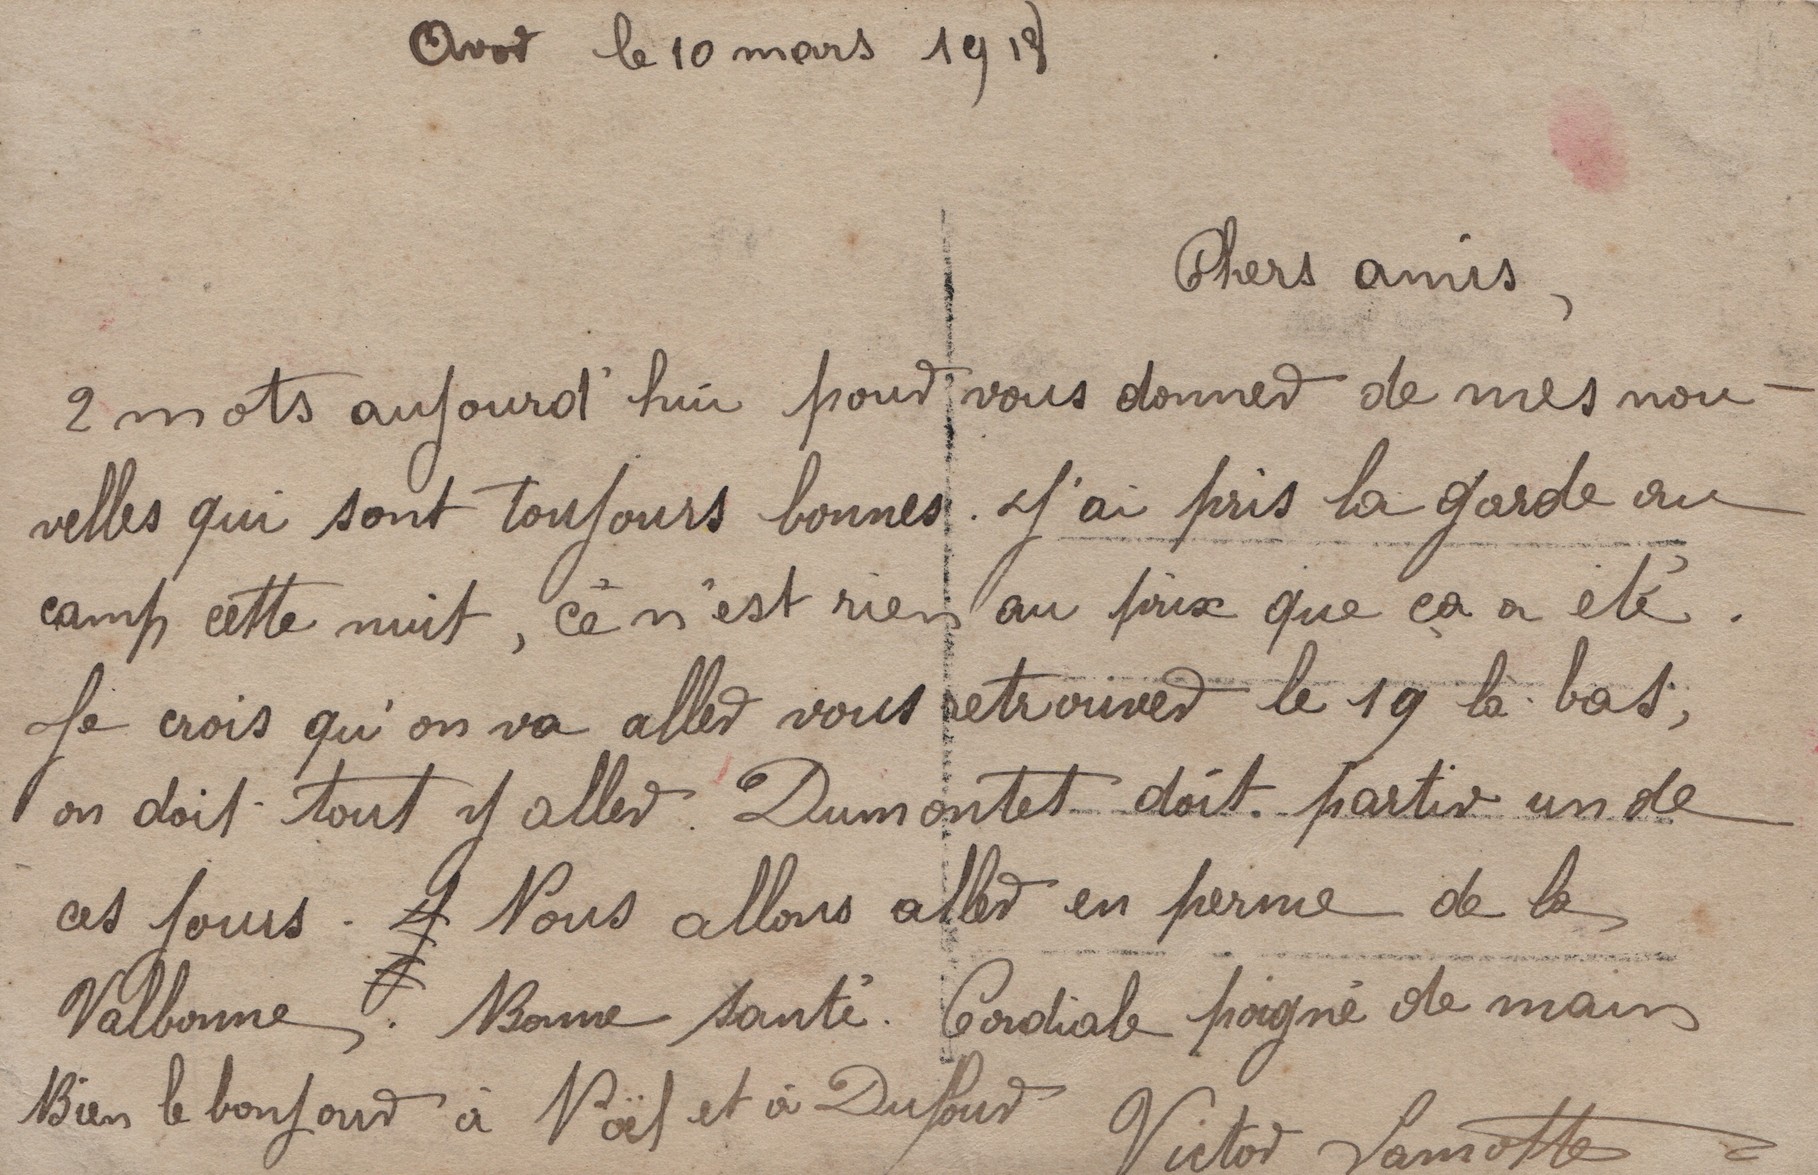 Avor le 10 mars 1918
Chers amis,
2 mots aujourd'hui pour vous donner de mes nou-
velles qui sont toujours bonnes. J'ai pris la garde au
camp cette nuit, ce n'est rien au prix que ça a été.
Je crois qu'on va aller vous retrouver le 19 là-bas,
on doit tout y aller. Dumontet doit partir un de
ces jours. Nous allons aller en perme de la
Valbonne. Bonne santé. Cordiale poigné de main
Bien le bonjour à Noël et à Dufour Victor Lamotte